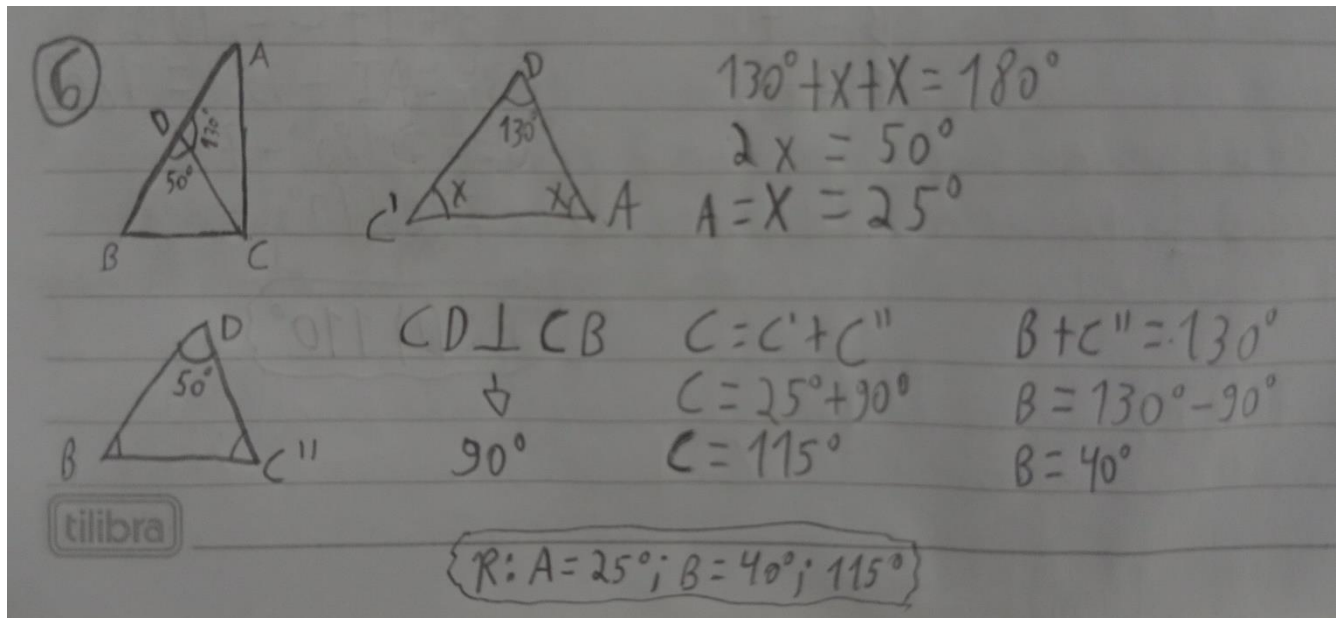 6
A
D
130°
50°
B
C
D
130°
C'
x
x
A
130° + x + x = 180°
2x = 50°
A = x = 25°
D
50°
B
C''
CD ⊥ CB
90°
C = C' + C''
C = 25° + 90°
C = 115°
B + C'' = 130°
B = 130° - 90°
B = 40°
tilibra
R: A = 25°; B = 40°; 115°